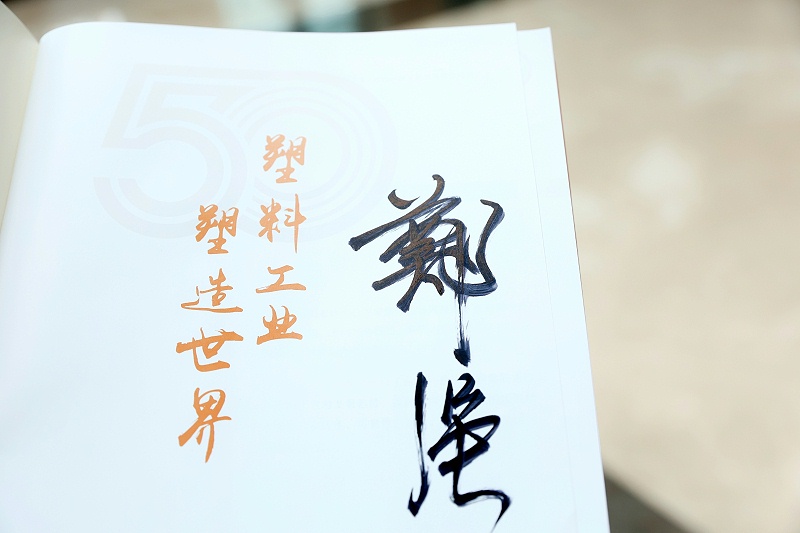 50
塑料工业
塑造世界
鄭